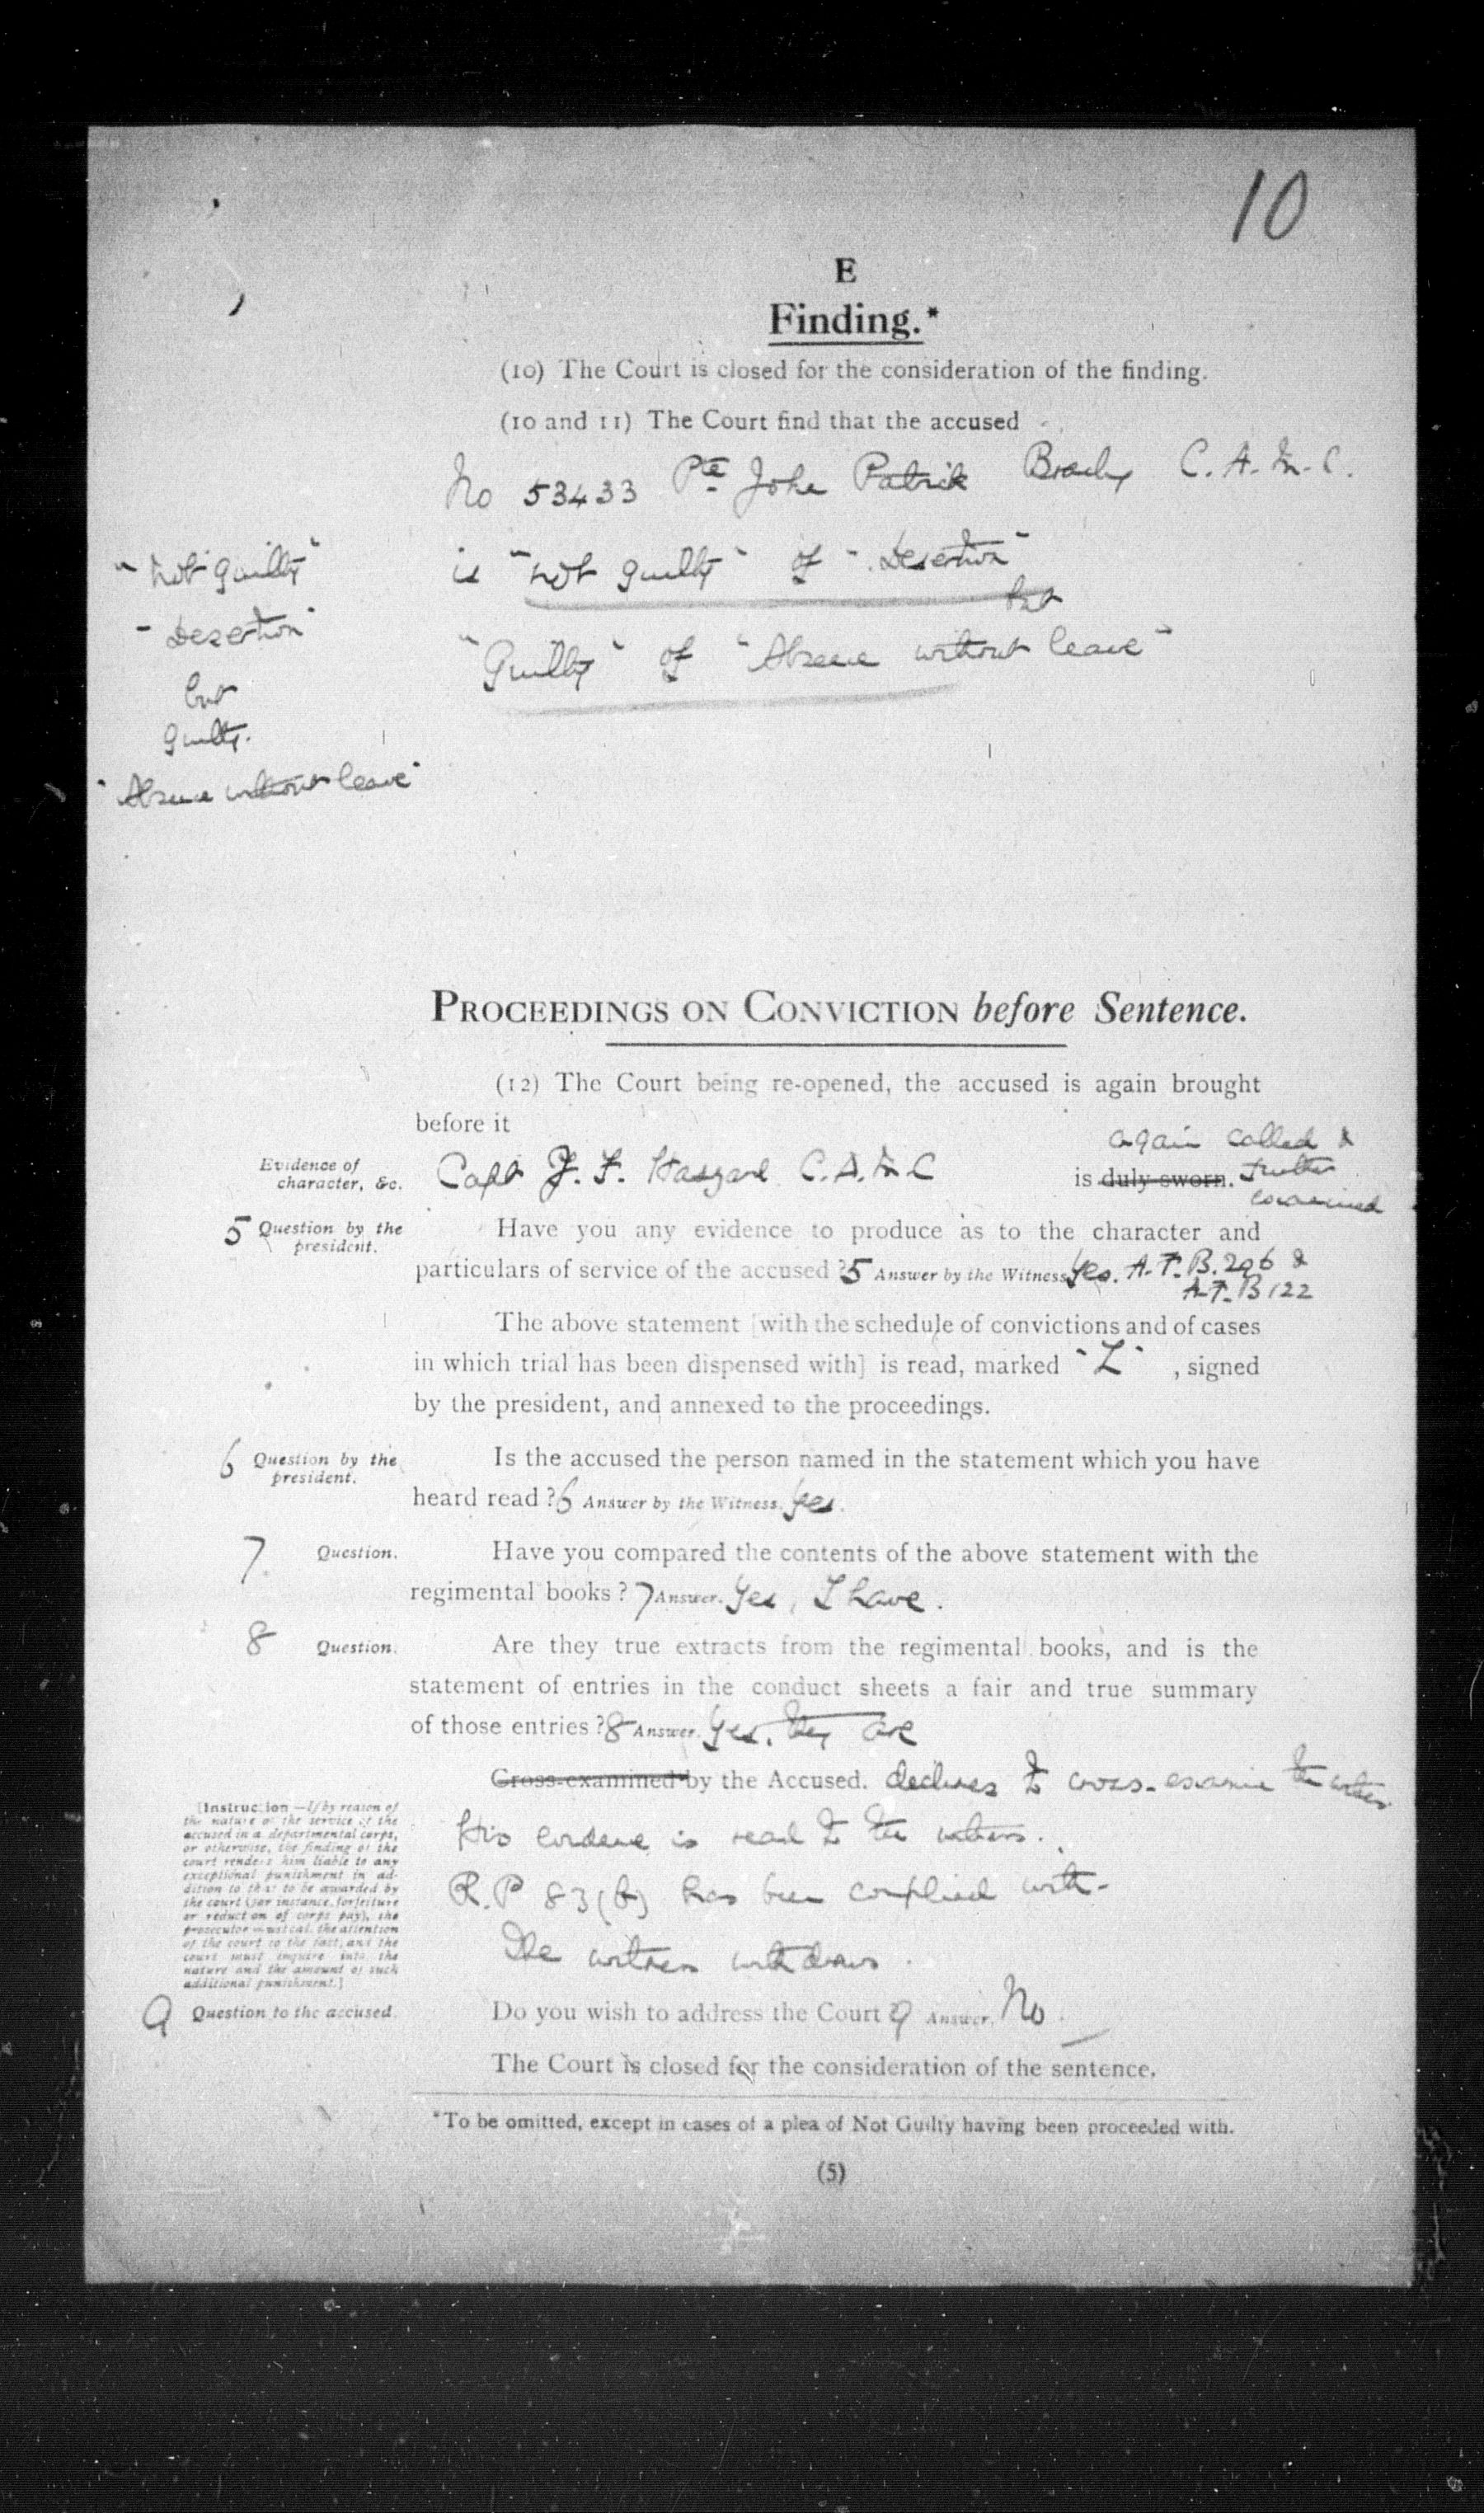 10
E
Finding.*
(10) The Court is closed for the consideration of the finding.
(10 and 11) The Court find that the accused
No 53433 Pte John Patrick Brady C.A.M.C.
is "not guilty" of "Desertion"
but
"Guilty" of "Absence without leave"
"Not guilty"
"Desertion"
but
guilty.
"Absence without leave"
PROCEEDINGS ON CONVICTION before Sentence.
(12) The Court being re-opened, the accused is again brought
before it
Evidence of
character, &c.
Capt J. F. C.A.M.C
again called &
is duly sworn. further
examined
5 Question by the
president.
Have you any evidence to produce as to the character and
particulars of service of the accused ? 5 Answer by the Witness Yes. A.F.B. 296 &
A.F.B 122
The above statement [with the schedule of convictions and of cases
in which trial has been dispensed with] is read, marked "L" , signed
by the president, and annexed to the proceedings.
6 Question by the
president.
Is the accused the person named in the statement which you have
heard read ? 6 Answer by the Witness. Yes.
7. Question.
Have you compared the contents of the above statement with the
regimental books ? 7 Answer. Yes, I have.
8 Question.
Are they true extracts from the regimental books, and is the
statement of entries in the conduct sheets a fair and true summary
of those entries ? 8 Answer. Yes, they are
Cross-examined by the Accused. declines to cross-examine the witness
His evidence is read to the witness.
R.P 83 (b) has been complied with.
The witness withdraws.
[Instruction.—If by reason of
the nature of the service of the
accused in a departmental corps,
or otherwise, the finding of the
court renders him liable to any
exceptional punishment in ad-
dition to that to be awarded by
the court (for instance, forfeiture
or reduction of corps pay), the
prosecutor must call the attention
of the court to the fact, and the
court must inquire into the
nature and the amount of such
additional punishment.]
9 Question to the accused.
Do you wish to address the Court 9 Answer. No.
The Court is closed for the consideration of the sentence.
*To be omitted, except in cases of a plea of Not Guilty having been proceeded with.
(5)